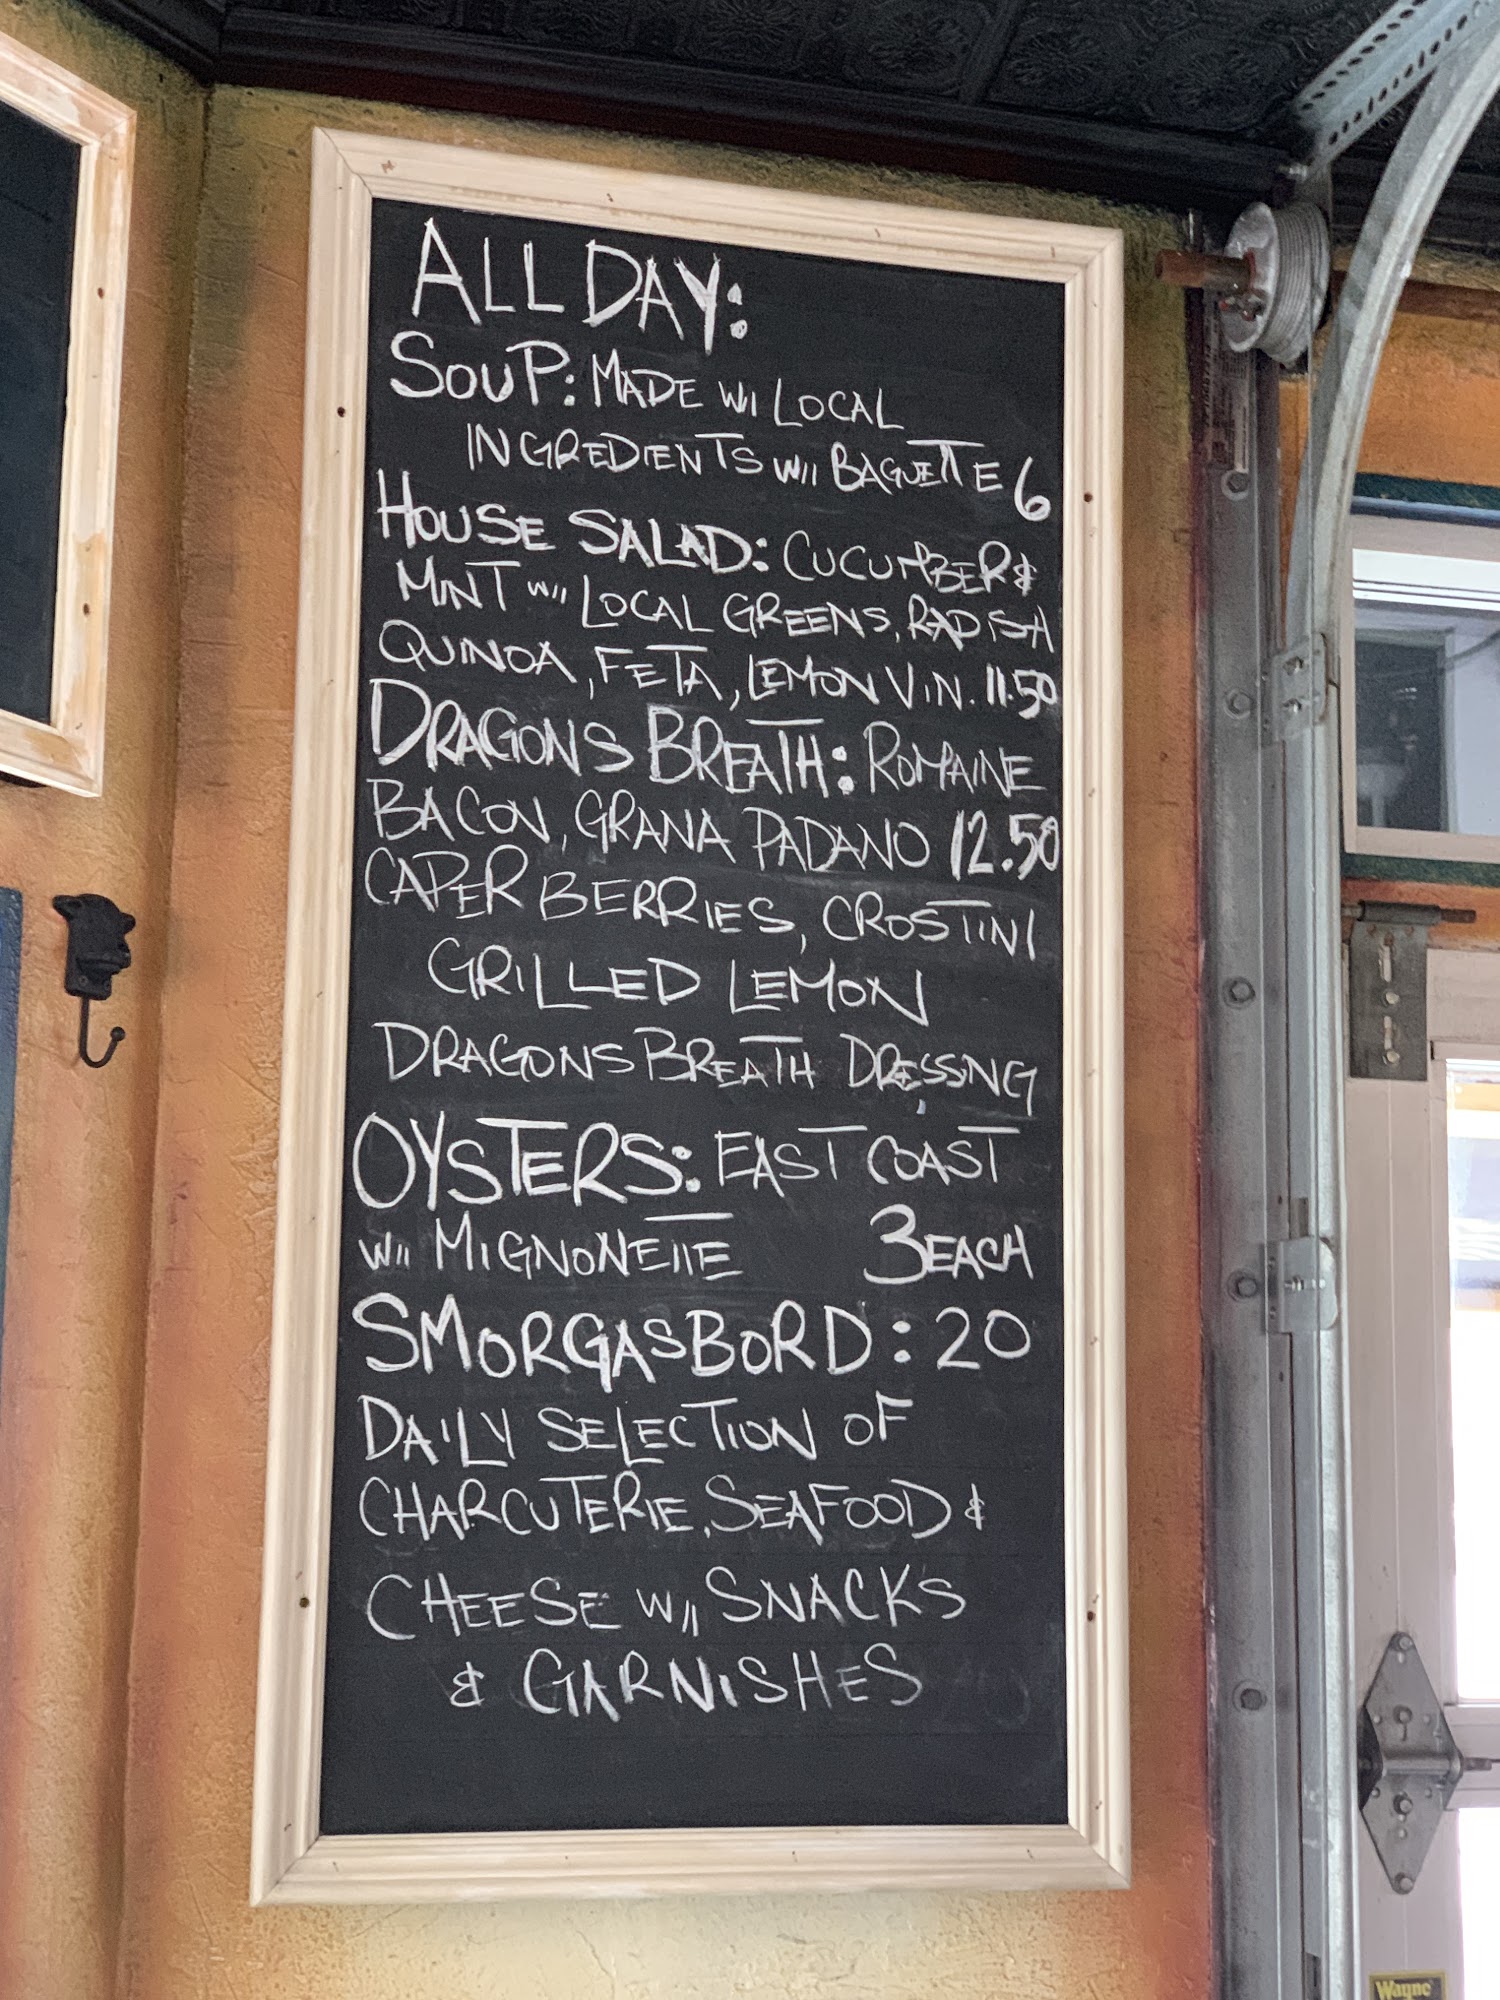 ALL DAY:
SOUP: MADE W/ LOCAL
INGREDIENTS W/ BAGUETTE 6
HOUSE SALAD: CUCUMBER &
MINT W/ LOCAL GREENS, RADISH
QUINOA, FETA, LEMON VIN. 11.50
DRAGONS BREATH: ROMAINE
BACON, GRANA PADANO 12.50
CAPER BERRIES, CROSTINI
GRILLED LEMON
DRAGONS BREATH DRESSING
OYSTERS: EAST COAST
W/ MIGNONETTE 3 EACH
SMORGASBORD: 20
DAILY SELECTION OF
CHARCUTERIE, SEAFOOD &
CHEESE W/ SNACKS
& GARNISHES
Wayne